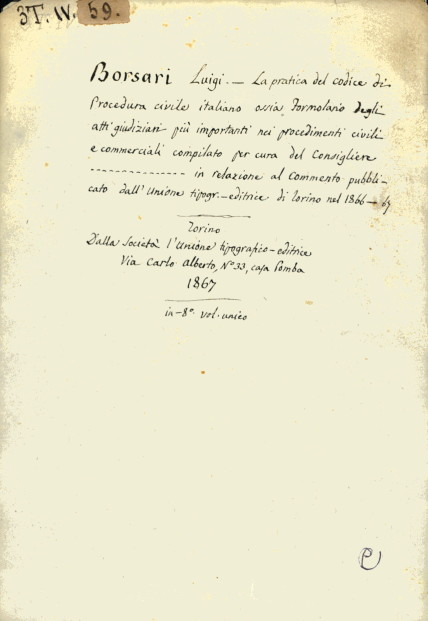 3T. IV. 59.
Borsari Luigi. — La pratica del codice di
Procedura civile italiano ossia Formolario degli
atti giudiziari più importanti nei procedimenti civili
e commerciali compilato per cura del Consigliere
--------------- in relazione al Commento pubbli-
cato dall'Unione tipogr.-editrice di Torino nel 1866-67
Torino
Dalla Società l'Unione tipografico-editrice
Via Carlo Alberto, N° 33, casa Pomba
1867
in-8° vol. unico